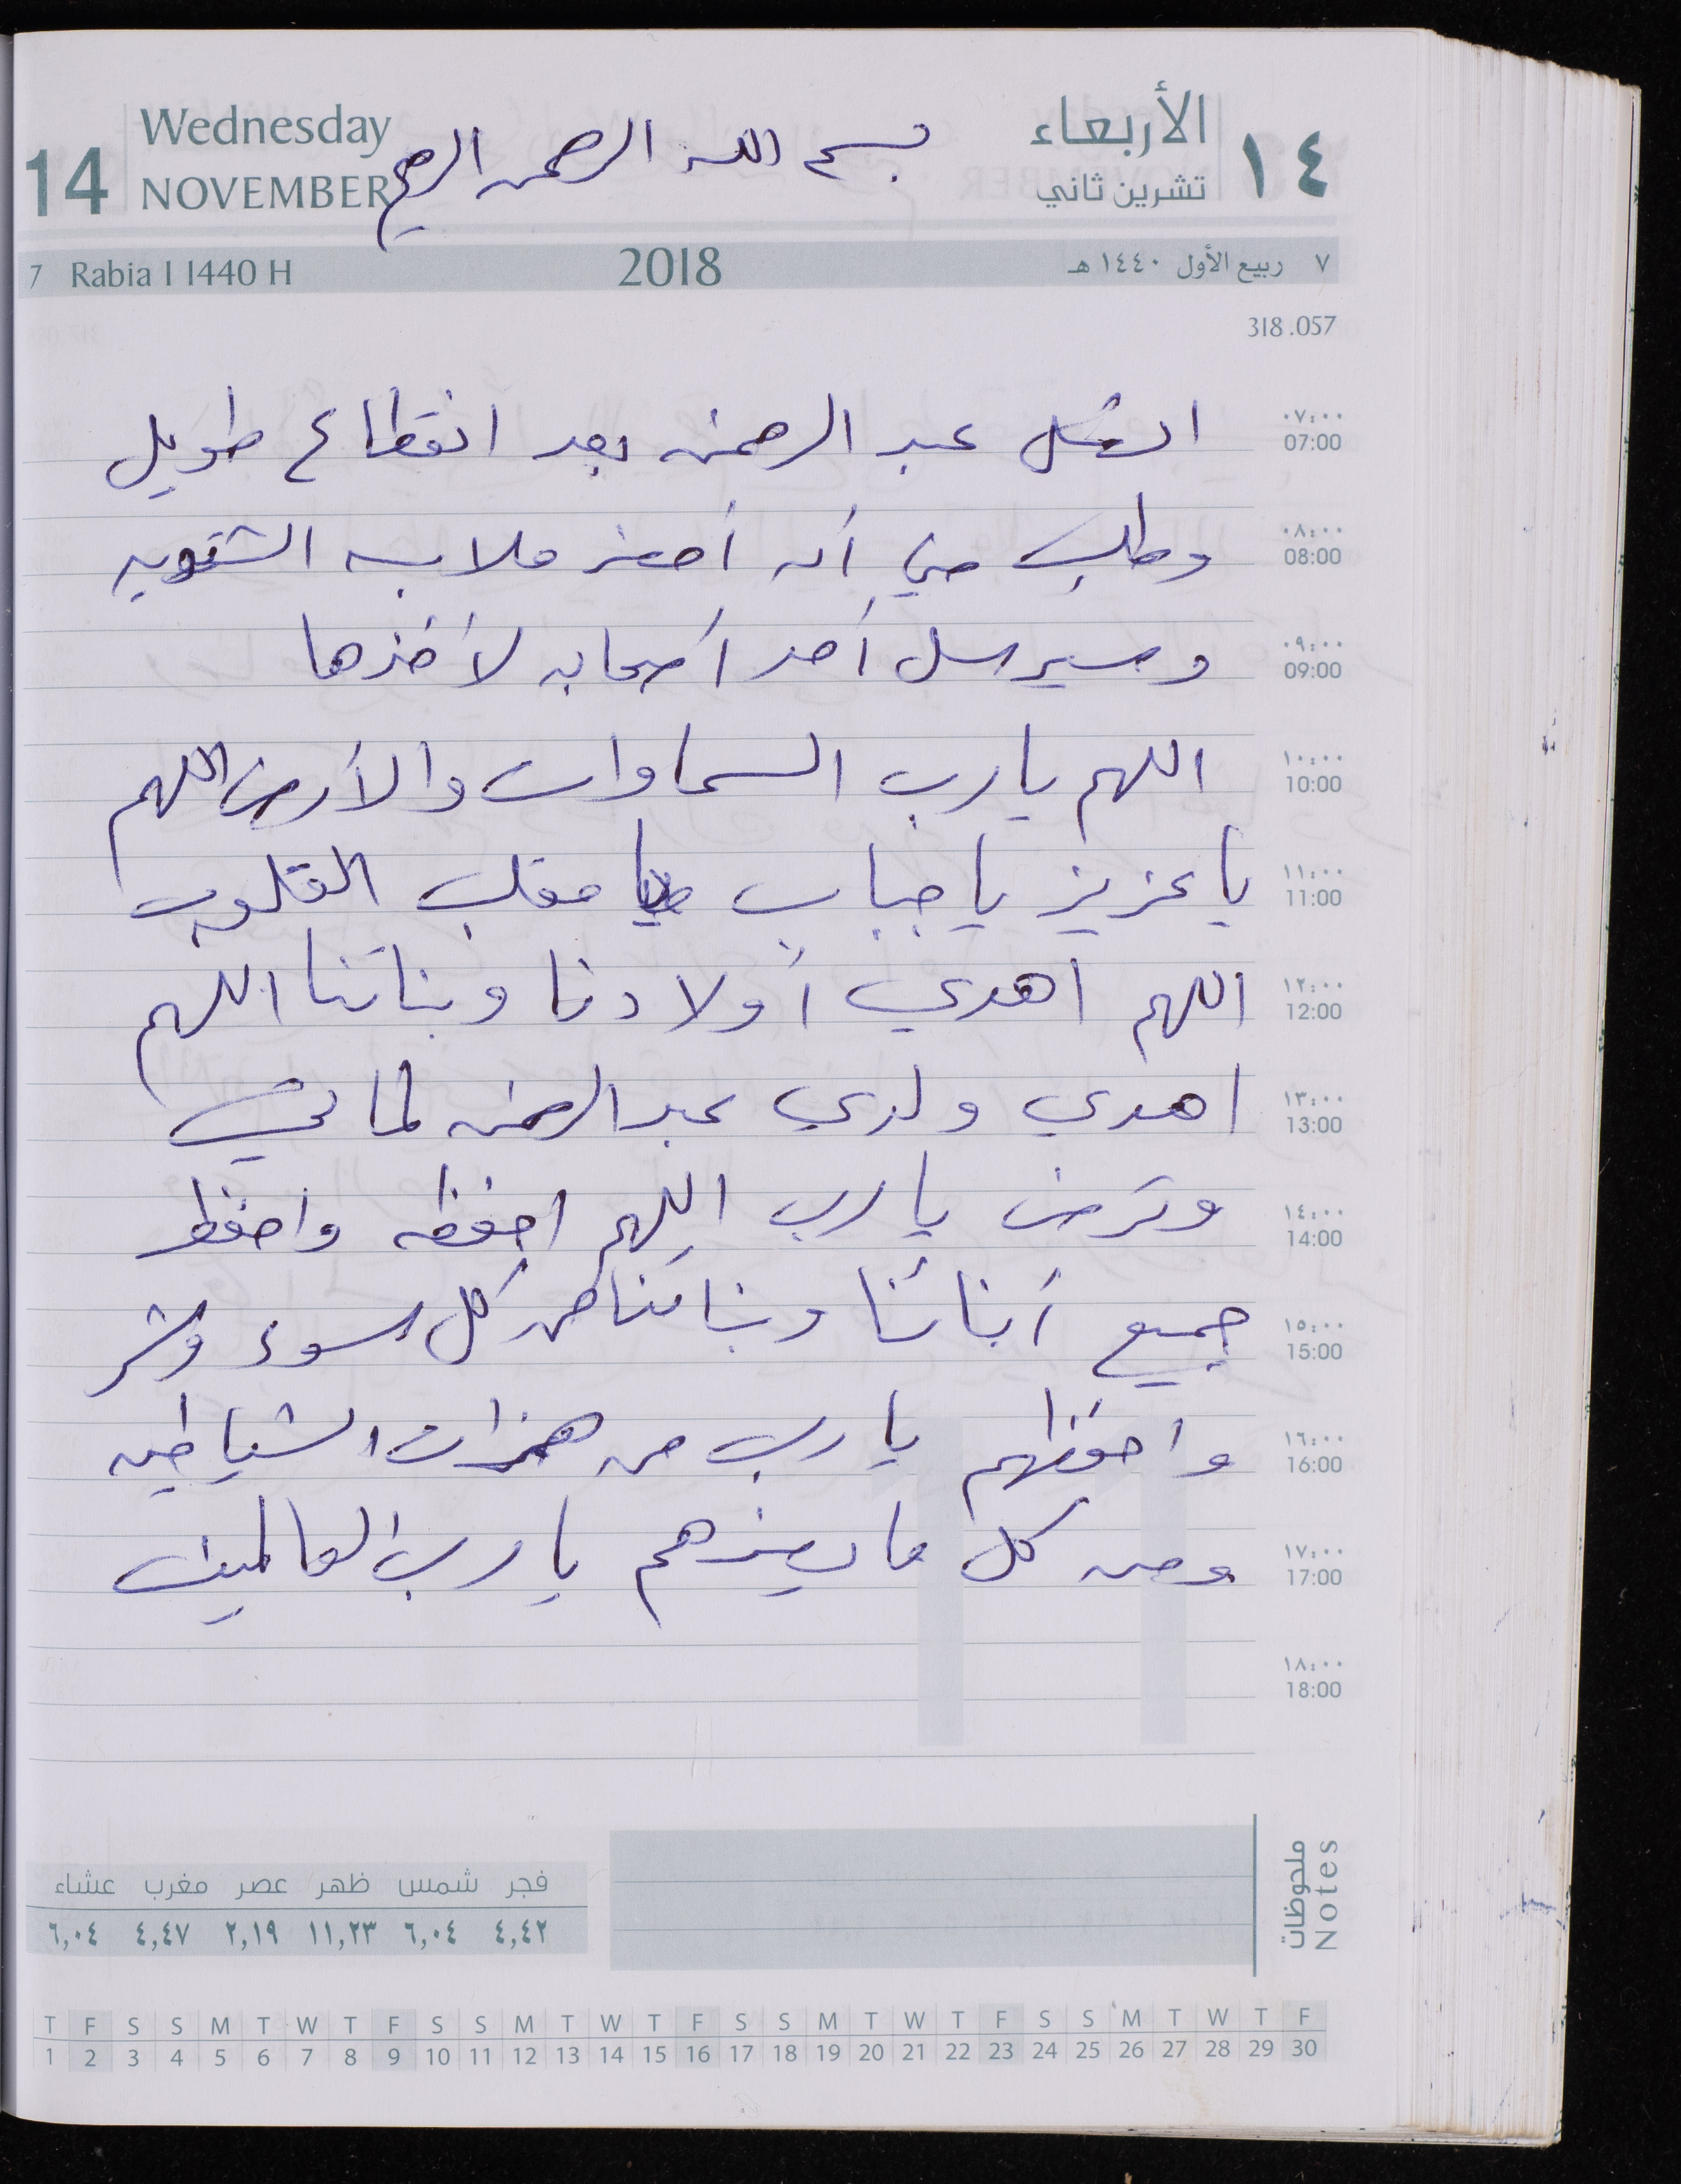 الأربعاء ١٤ Wednesday 14
تشرين ثاني NOVEMBER
بسم الله الرحمن الرحيم
7 Rabia I 1440 H 2018 ٧ ربيع الأول ١٤٤٠ هـ
318.057
٠٧:٠٠ 07:00 اتصل عبد الرحمن بعد انقطاع طويل
٠٨:٠٠ 08:00 وطلب مني أن أجهز ملابسه الشتوية
٠٩:٠٠ 09:00 وسيرسل أحد أصحابه لأخذها
١٠:٠٠ 10:00 اللهم يارب السماوات والأرض اللهم
١١:٠٠ 11:00 يا عزيز يا جبار يا مقلب القلوب
١٢:٠٠ 12:00 اللهم اهدي أولادنا وبناتنا اللهم
١٣:٠٠ 13:00 اهدي ولدي عبد الرحمن لما تحب
١٤:٠٠ 14:00 وترضى يارب اللهم احفظه واحفظ
١٥:٠٠ 15:00 جميع أبنائنا وبناتنا من كل سوء وشر
١٦:٠٠ 16:00 واحفظهم يارب من همزات الشياطين
١٧:٠٠ 17:00 ومن كل ما يضرهم يا رب العالمين
١٨:٠٠ 18:00
ملحوظات Notes
فجر شمس ظهر عصر مغرب عشاء
٤,٤٢ ٦,٠٤ ١١,٢٣ ٢,١٩ ٤,٤٧ ٦,٠٤
T F S S M T W T F S S M T W T F S S M T W T F S S M T W T F
1 2 3 4 5 6 7 8 9 10 11 12 13 14 15 16 17 18 19 20 21 22 23 24 25 26 27 28 29 30